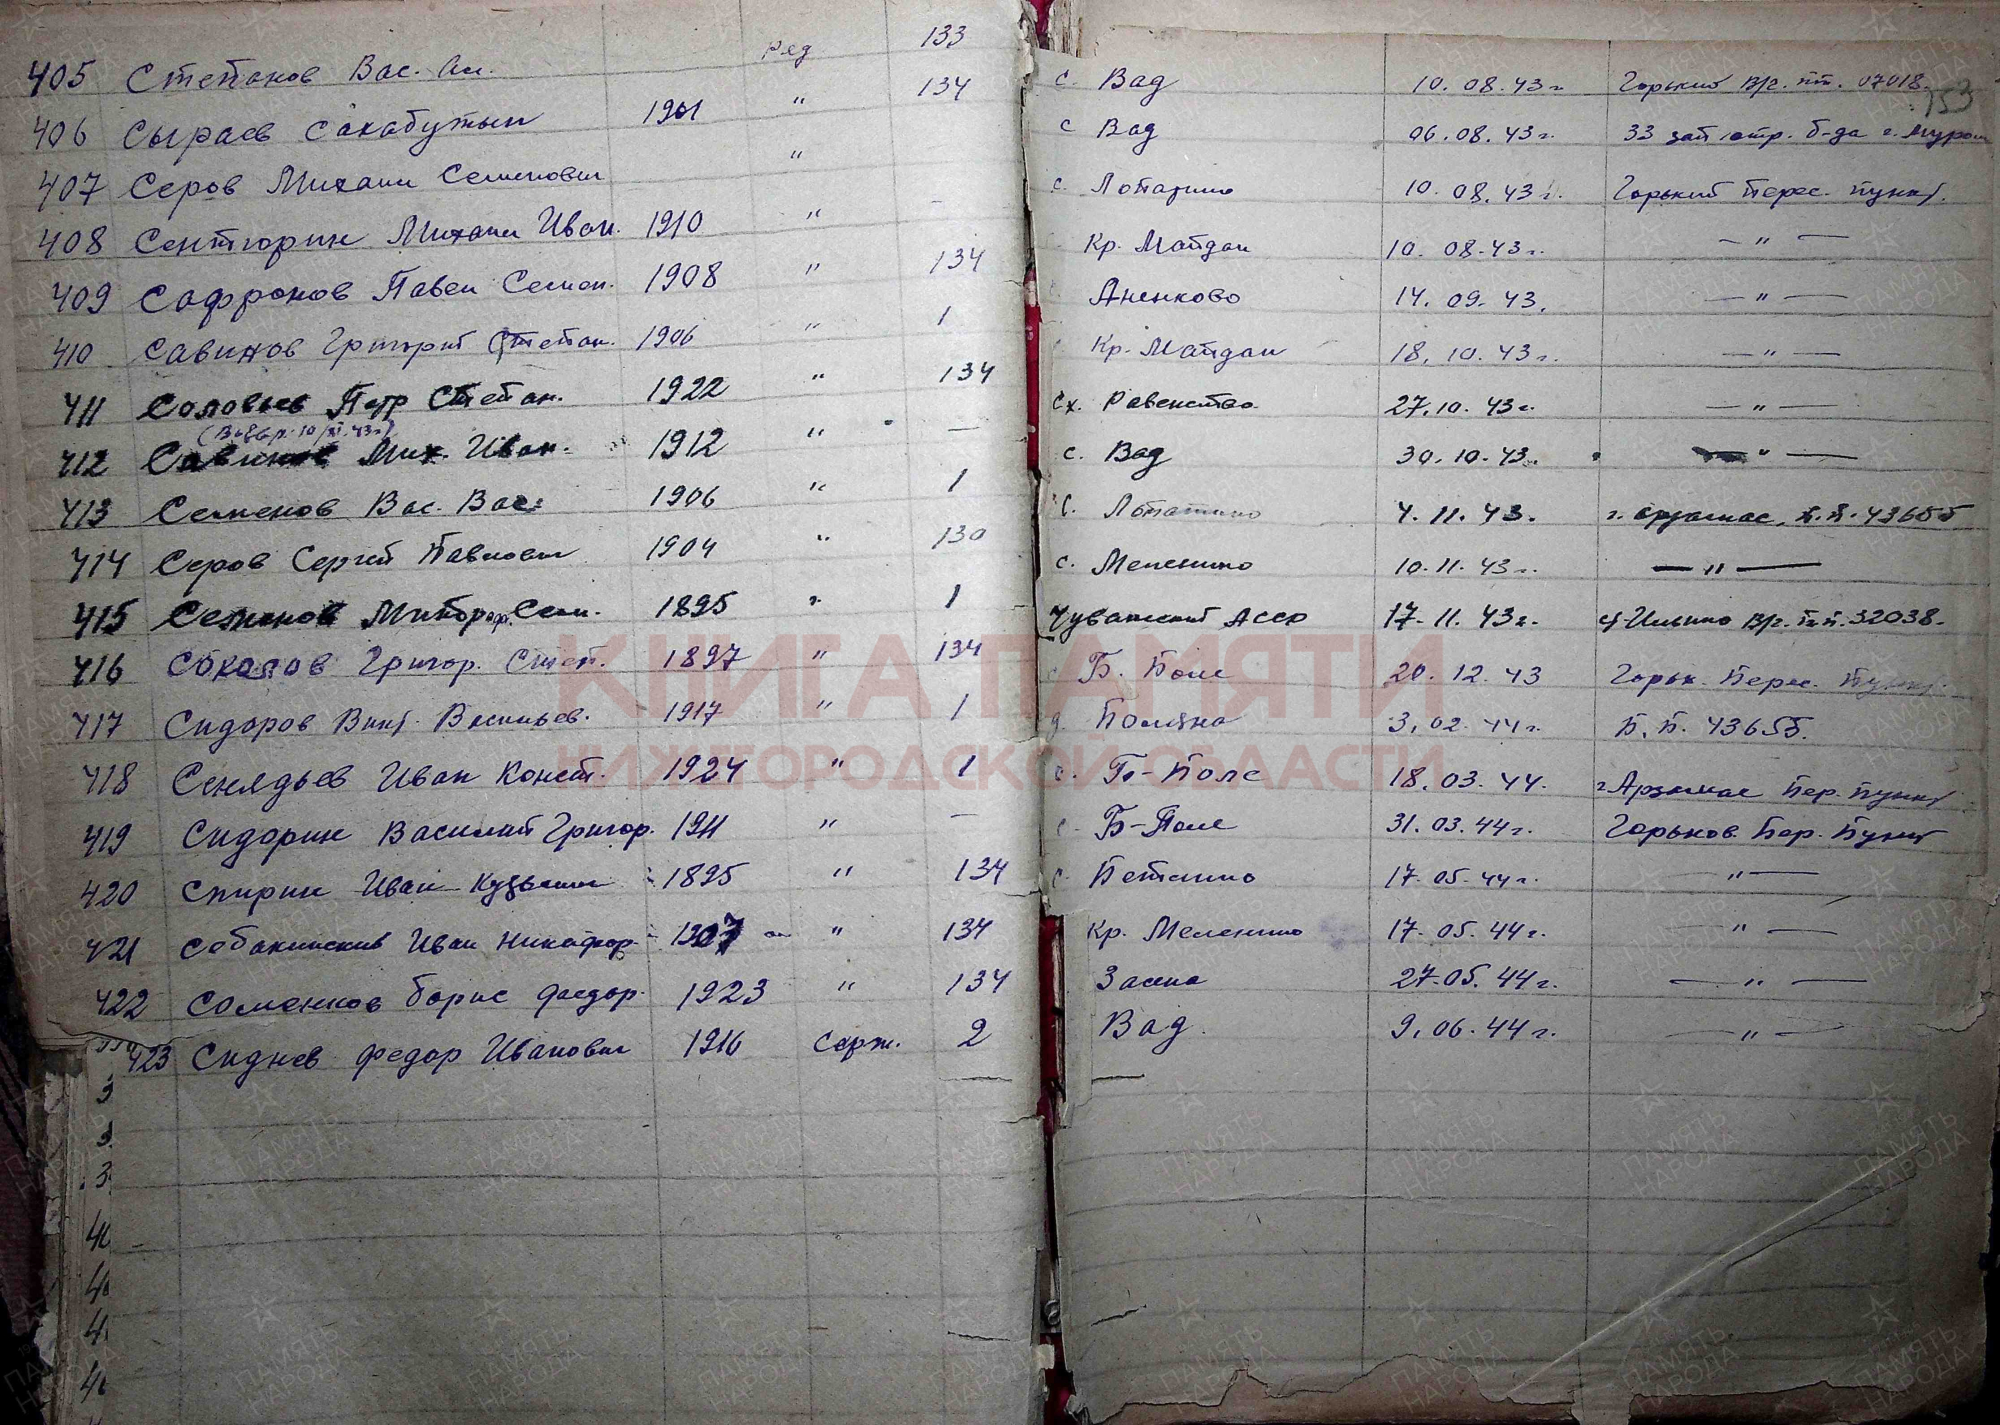 405 Степанов Вас. Ал. ряд 133 с. Вад 10.08.43г Горький В/с. пп. 07018.
153
406 Сыраев Сахабутын 1901 " 134 с Вад 06.08.43г. 33 зап. стр. б-да г. Муром
407 Серов Михаил Семенович " с. Лопатино 10.08.43г. Горький перес. пункт.
408 Сентюрин Михаил Иван. 1910 " - Кр. Майдан 10.08.43г. — " —
409 Сафронов Павел Семен. 1908 " 134 Аненково 14.09.43. — " —
410 Савинов Григорий Степан. 1906 " 1 Кр. Майдан 18.10.43г. — " —
411 Соловьев Петр Степан. 1922 " 134 сх. Равенство 27.10.43г. — " —
412 Савинов Мих. Иван. 1912 " — с. Вад 30.10.43г. — " —
413 Семенов Вас. Вас. 1906 " 1 с. Лопатино 4.11.43. г. Арзамас, п.п. 43655
414 Серов Сергей Павлович 1904 " 130 с. Меленино 10.11.43г. — " —
415 Семенов Сем. 1895 " 1 Чувашский АССР 17.11.43г. Ильино В/г. п.п. 32038.
416 Соколов Григор. Степ. 1897 " 134 Б. Поле 20.12.43 Горьк. Перес. Пункт.
417 Сидоров Викт. Васильев. 1917 " 1 д. Поляна 3.02.44г. П.П. 43655.
418 Сенядьев Иван Конст. 1924 " 1 с. Б-Поле 18.03.44. г Арзамас Пер. пункт
419 Сидорин Василий Григор. 1911 " — с. Б-Поле 31.03.44г. Горьков. Пер. Пункт
420 Спирин Иван Кузьмич 1895 " 134 с. Петлино 17.05.44г. — " —
421 Собакинский Иван Никифор. 1907 " 134 Кр. Меленино 17.05.44г. — " —
422 Соменков Борис Федор. 1923 " 134 27.05.44г. — " —
423 Сиднев Федор Иванович 1916 Серж. 2 Вад. 9.06.44г. — " —
КНИГА ПАМЯТИ
НИЖЕГОРОДСКОЙ ОБЛАСТИ
ПАМЯТЬ
НАРОДА